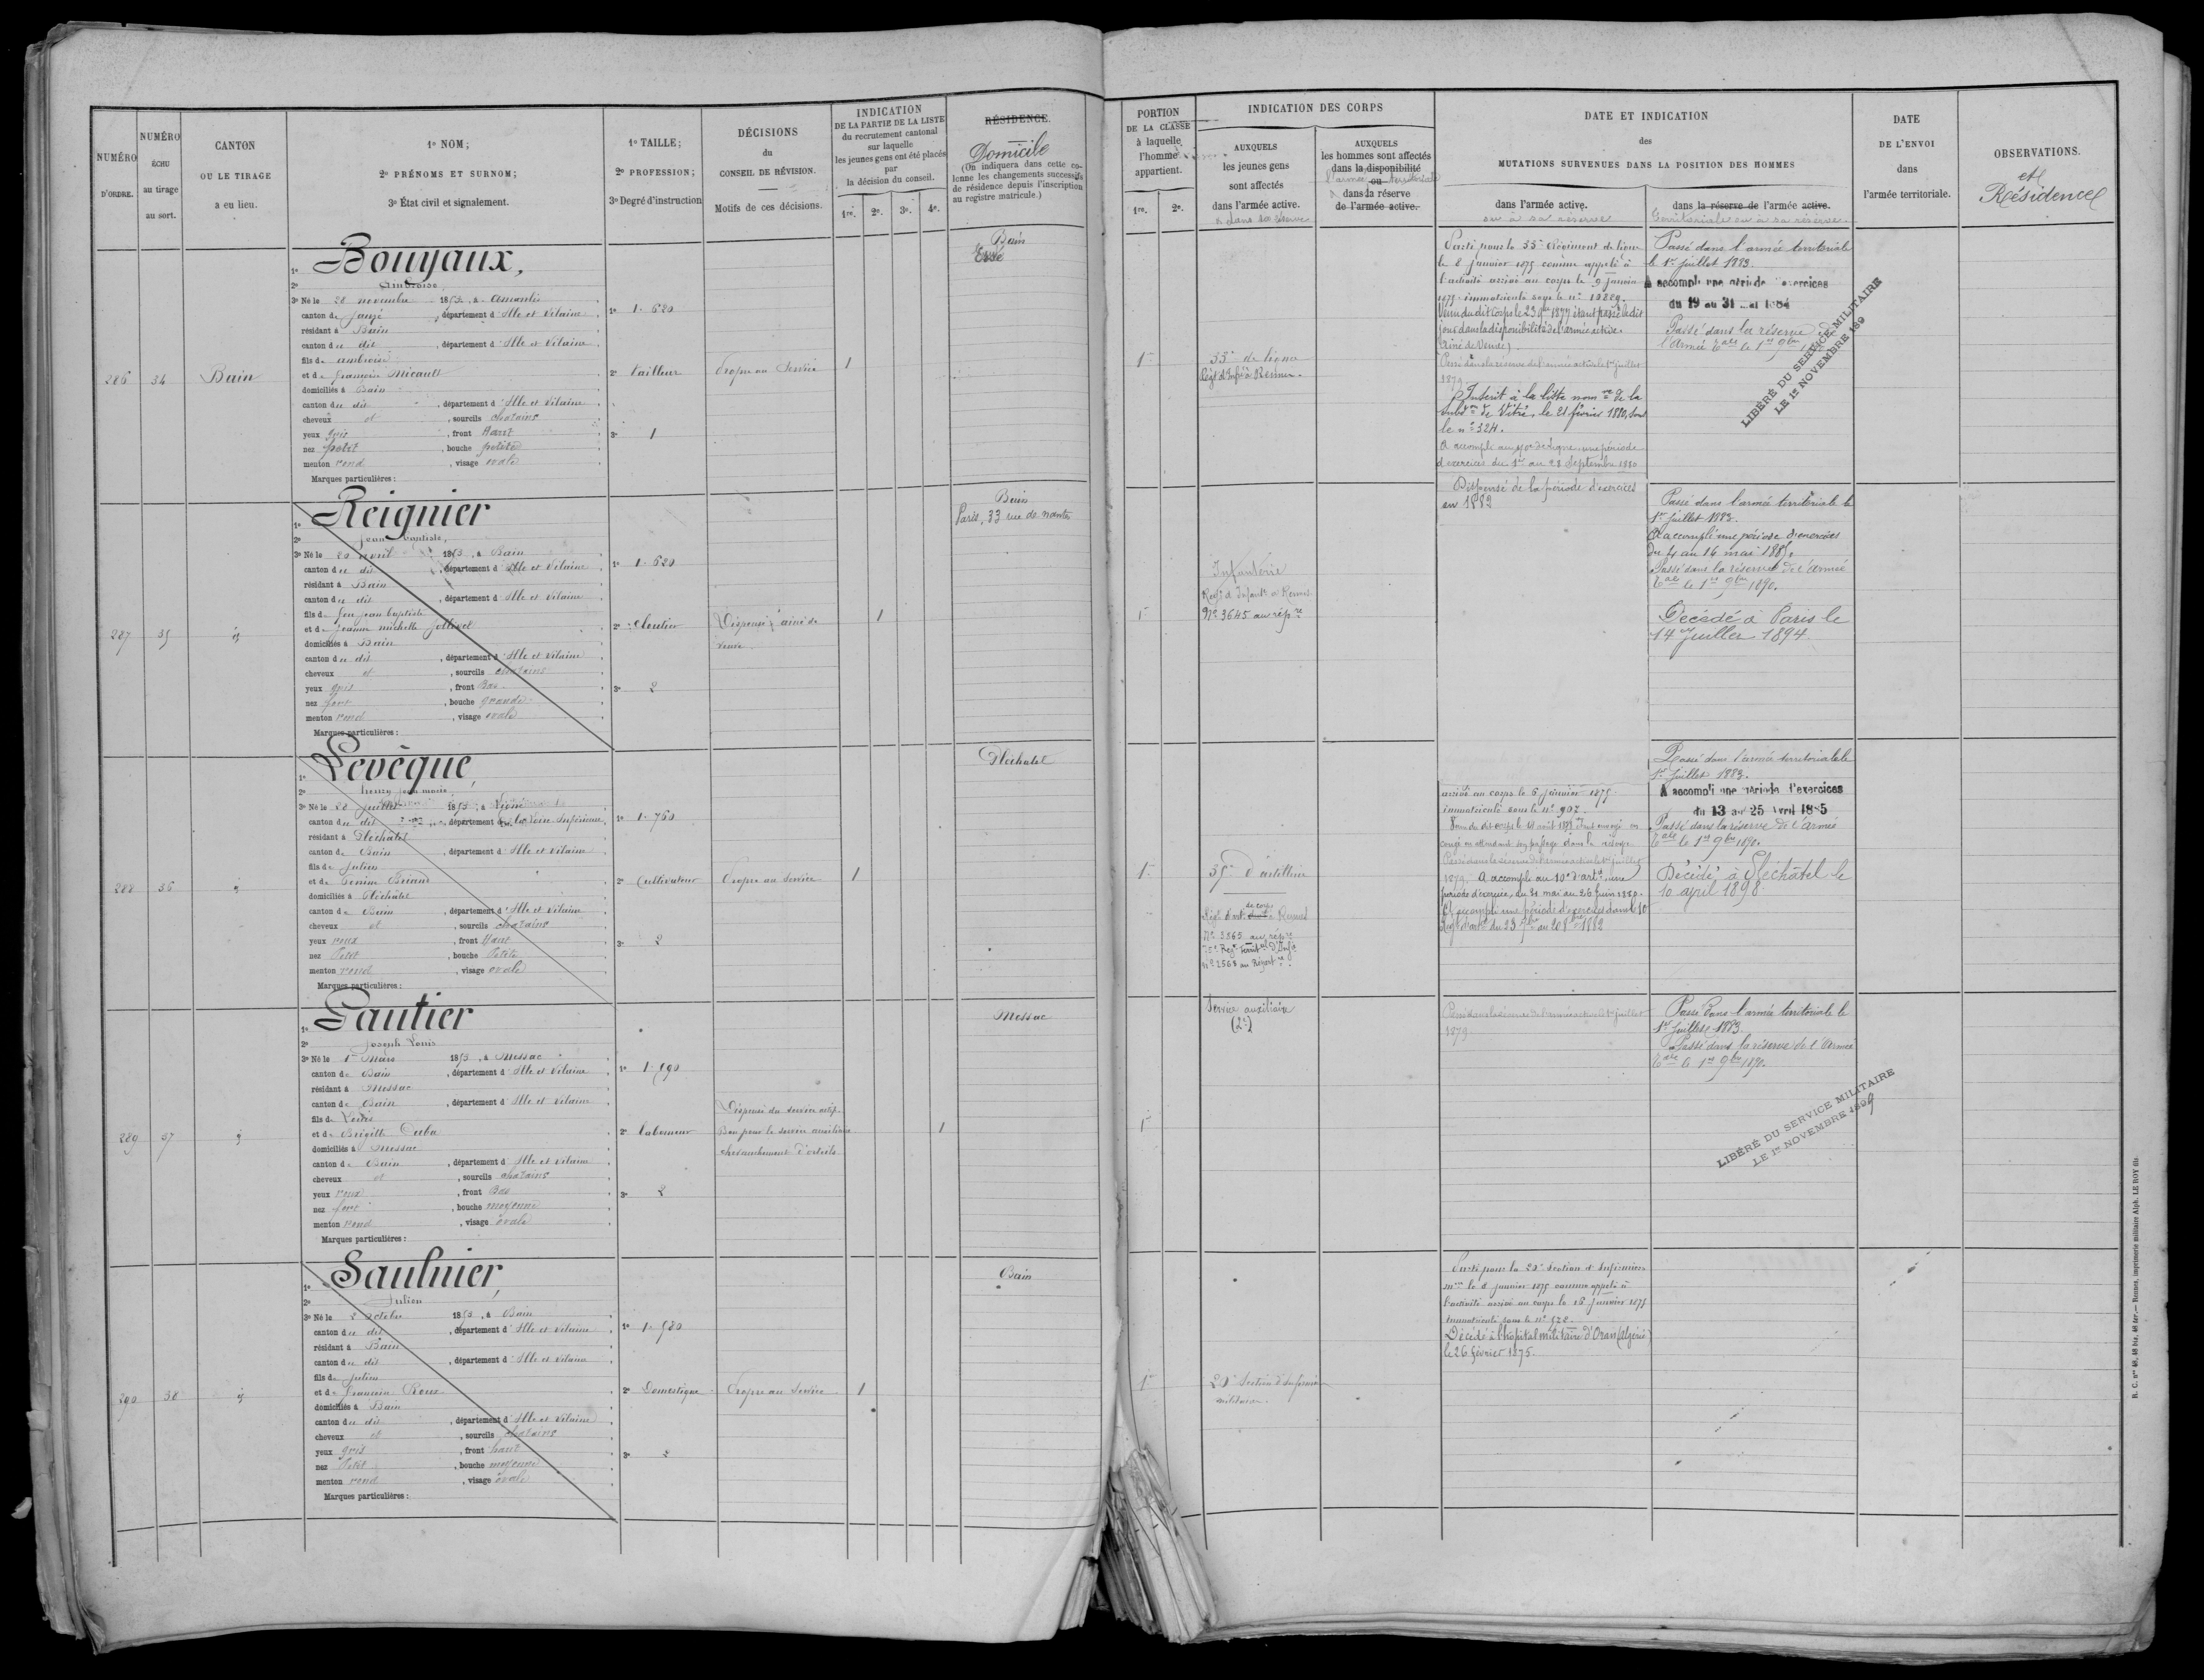 NUMÉRO
D'ORDRE.
NUMÉRO
ÉCHU
au tirage
au sort.
CANTON
OU LE TIRAGE
a eu lieu.
1º NOM;
2º PRÉNOMS ET SURNOM;
3º État civil et signalement.
1º TAILLE;
2º PROFESSION;
3º Degré d'instruction
DÉCISIONS
du
CONSEIL DE RÉVISION.
Motifs de ces décisions.
INDICATION
DE LA PARTIE DE LA LISTE
du recrutement cantonal
sur laquelle
les jeunes gens ont été placés
par
la décision du conseil.
1re. 2e. 3e. 4e.
RÉSIDENCE.
Domicile
(On indiquera dans cette co-
lonne les changements successifs
de résidence depuis l'inscription
au registre matricule.)
PORTION
DE LA CLASSE
à laquelle
l'homme
appartient.
1re. 2e.
INDICATION DES CORPS
AUXQUELS
les jeunes gens
sont affectés
dans l'armée active.
AUXQUELS
les hommes sont affectés
dans la disponibilité
ou
l'armée territoriale
dans la réserve
de l'armée active.
DATE ET INDICATION
des
MUTATIONS SURVENUES DANS LA POSITION DES HOMMES
dans l'armée active.
ou à sa réserve
dans la réserve de l'armée active.
territoriale ou à sa réserve.
DATE
DE L'ENVOI
dans
l'armée territoriale.
OBSERVATIONS.
et
Résidence
286
34
Bain
1º Bouyaux,
2º Ambroise
3º Né le 28 novembre 1853, à Amanlis
canton de Janzé, département d'Ille et Vilaine
résidant à Bain
canton du dit, département d'Ille et Vilaine
fils de ambroise
et de françoise Micault
domiciliés à Bain
canton du dit, département d'Ille et Vilaine
cheveux et, sourcils chatains
yeux gris, front Haut
nez petit, bouche petite
menton rond, visage ovale
Marques particulières:
1º 1.620
2º tailleur
3º 1
Propre au Service
1
Bain
Essé
1re
33e de ligne
Régt d'Infie à Rennes.
Parti pour le 33e Régiment de ligne
le 8 janvier 1875 comme appelé à
l'activité arrivé au corps le 9 janvier
1875 immatriculé sous le nº 10889.
Venu du dit Corps le 23 9bre 1877 étant passé le dit
jour dans la disponibilité de l'armée active.
(Ainé de Veuve)
Passé dans la réserve de l'armée active le 1er juillet
1879.
Inscrit à la liste nomve de la
subdon de Vitré, le 21 février 1880, sous
le nº 324.
A accompli au 70e de Ligne une période
d'exercices du 1er au 28 Septembre 1880
Passé dans l'armée territoriale
le 1er juillet 1883.
A accompli une période d'exercices
du 19 au 31 mai 1884
Passé dans la réserve de
l'Armée tale le 1er 9bre
LIBÉRÉ DU SERVICE MILITAIRE
LE 1er NOVEMBRE 189
287
35
id
1º Reignier
2º Jean baptiste,
3º Né le 20 avril 1853, à Bain
canton du dit, département d'Ille et Vilaine
résidant à Bain
canton du dit, département d'Ille et Vilaine
fils de feu jean baptiste
et de jeanne michelle Jollivel
domiciliés à Bain
canton du dit, département d'Ille et Vilaine
cheveux et, sourcils chatains
yeux gris, front Bas
nez fort, bouche grande
menton rond, visage ovale
Marques particulières:
1º 1.620
2º Cloutier
3º 2
Dispensé ainé de
veuve.
1
Bain
Paris, 33 rue de nantes
1re
Infanterie
Regt d'Infantie à Rennes
Nº 3645 au répre
Dispensé de la période d'exercices
en 1882
Passé dans l'armée territoriale le
1er juillet 1883.
A accompli une période d'exercices
du 4 au 16 mai 1885.
Passé dans la réserve de l'Armée
tale le 1er 9bre 1890.
Décédé à Paris le
14 Juillet 1894.
288
36
id
1º Levêque,
2º henry jean marie
3º Né le 28 juillet 1853, à
canton du dit, département de la Loire Inférieure
résidant à Plechâtel
canton de Bain, département d'Ille et Vilaine
fils de Julien
et de Perrine Briand
domiciliés à Plechâtel
canton de Bain, département d'Ille et Vilaine
cheveux et, sourcils chatains
yeux roux, front Haut
nez Petit, bouche Petite
menton rond, visage ovale
Marques particulières:
1º 1.760
2º Cultivateur
3º 2
Propre au Service
1
Plechatel
1re
35e d'artillerie
Régt d'art. de corps à Rennes
Nº 3365 au répre
Regt territal d'Infie
Nº 2568 au Répertre.
arrivé au corps le 6 janvier 1875
immatriculé sous le nº 902.
congé en attendant son passage dans la réserve
Passé dans la réserve de l'armée active le 1er juillet
1879. A accompli au 10e d'artie une
période d'exercices du 31 mai au 26 juin 1880.
A accompli une période d'exercices dans le 10e
Régt d'artie du 23 7bre au 20 8bre 1882
Passé dans l'armée territoriale le
1er juillet 1883.
A accompli une période d'exercices
du 13 au 25 Avril 1885
Passé dans la réserve de l'armée
tale le 1er 9bre 1890.
Décédé à Plechâtel le
10 april 1898.
289
37
id
1º Gautier
2º Joseph Louis
3º Né le 1er Mars 1853, à Messac
canton de Bain, département d'Ille et Vilaine
résidant à Messac
canton de Bain, département d'Ille et Vilaine
fils de Louis
et de Brigitte Duba
domiciliés à Messac
canton de Bain, département d'Ille et Vilaine
cheveux et, sourcils chatains
yeux roux, front Bas
nez fort, bouche moyenne
menton rond, visage ovale
Marques particulières:
1º 1.590
2º laboureur
3º 2
Dispensé du service actif.
Bon pour le service auxiliaire
chevauchement d'orteils
1
Messac
1re
Service auxiliaire
(2e)
Passé dans la réserve de l'armée active le 1er juillet
1879.
Passé dans l'armée territoriale le
1er juillet 1883
Passé dans la réserve de l'Armée
tale le 1er 9bre 1890.
LIBÉRÉ DU SERVICE MILITAIRE
LE 1er NOVEMBRE 1899
290
38
id
1º Saulnier,
2º Julien
3º Né le 2 octobre 1853, à Bain
canton du dit, département d'Ille et Vilaine
résidant à Bain
canton du dit, département d'Ille et Vilaine
fils de Julien
et de françoise Roux
domiciliés à Bain
canton du dit, département d'Ille et Vilaine
cheveux et, sourcils chatains
yeux gris, front haut
nez Petit, bouche moyenne
menton rond, visage ovale
Marques particulières:
1º 1.580
2º Domestique
3º 2
Propre au Service
1
Bain
1re
20e Section d'infirmiers
militaires.
Parti pour la 20e Section d'Infirmiers
mres le 8 janvier 1875 comme appelé à
l'activité arrivé au corps le 16 janvier 1875
immatriculé sous le nº 578.
Décédé à l'hopital militaire d'Oran (Algérie)
le 26 février 1875.
R. C. nos 48, 48 bis, 48 ter.— Rennes, imprimerie militaire Alph. LE ROY fils